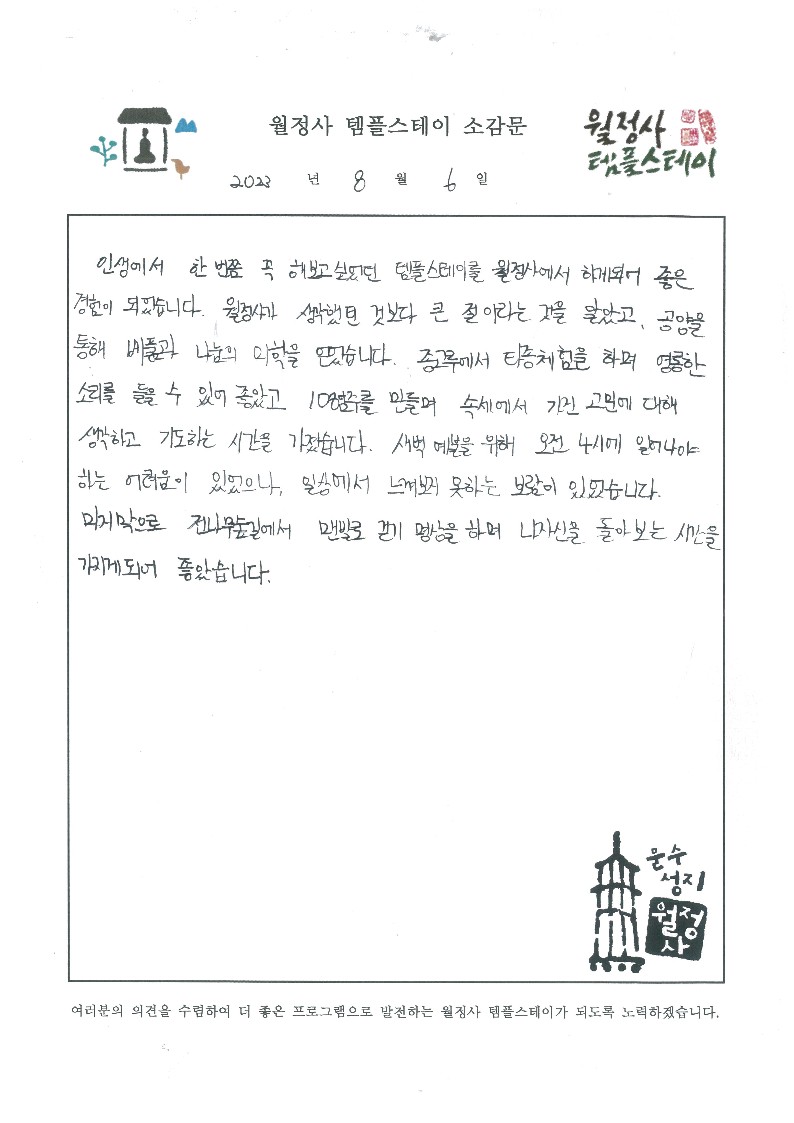 월정사 템플스테이 소감문
월정사
템플스테이
2023 년 8 월 6 일
인생에서 한 번쯤 꼭 해보고 싶었던 템플스테이를 월정사에서 하게되어 좋은
경험이 되었습니다. 월정사가 생각했던 것보다 큰 절이라는 것을 알았고, 공양을
통해 베풂과 나눔의 미학을 얻었습니다. 종고루에서 타종체험을 하며 영롱한
소리를 들을 수 있어 좋았고 108염주를 만들며 속세에서 가진 고민에 대해
생각하고 기도하는 시간을 가졌습니다. 새벽 예불을 위해 오전 4시에 일어나야
하는 어려움이 있었으나, 일상에서 느껴보지 못하는 보람이 있었습니다.
마지막으로 전나무숲길에서 맨발로 걷기 명상을 하며 나자신을 돌아보는 시간을
가지게되어 좋았습니다.
문수
성지
월정
사
여러분의 의견을 수렴하여 더 좋은 프로그램으로 발전하는 월정사 템플스테이가 되도록 노력하겠습니다.